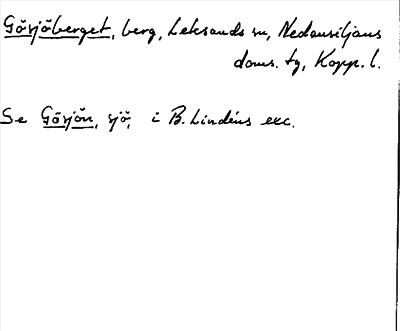 Gösjöberget, berg, Leksands sn, Nedansiljans
doms. tg, Kopp. l.
Se Gösjön, sjö, i B. Lindéns exc.